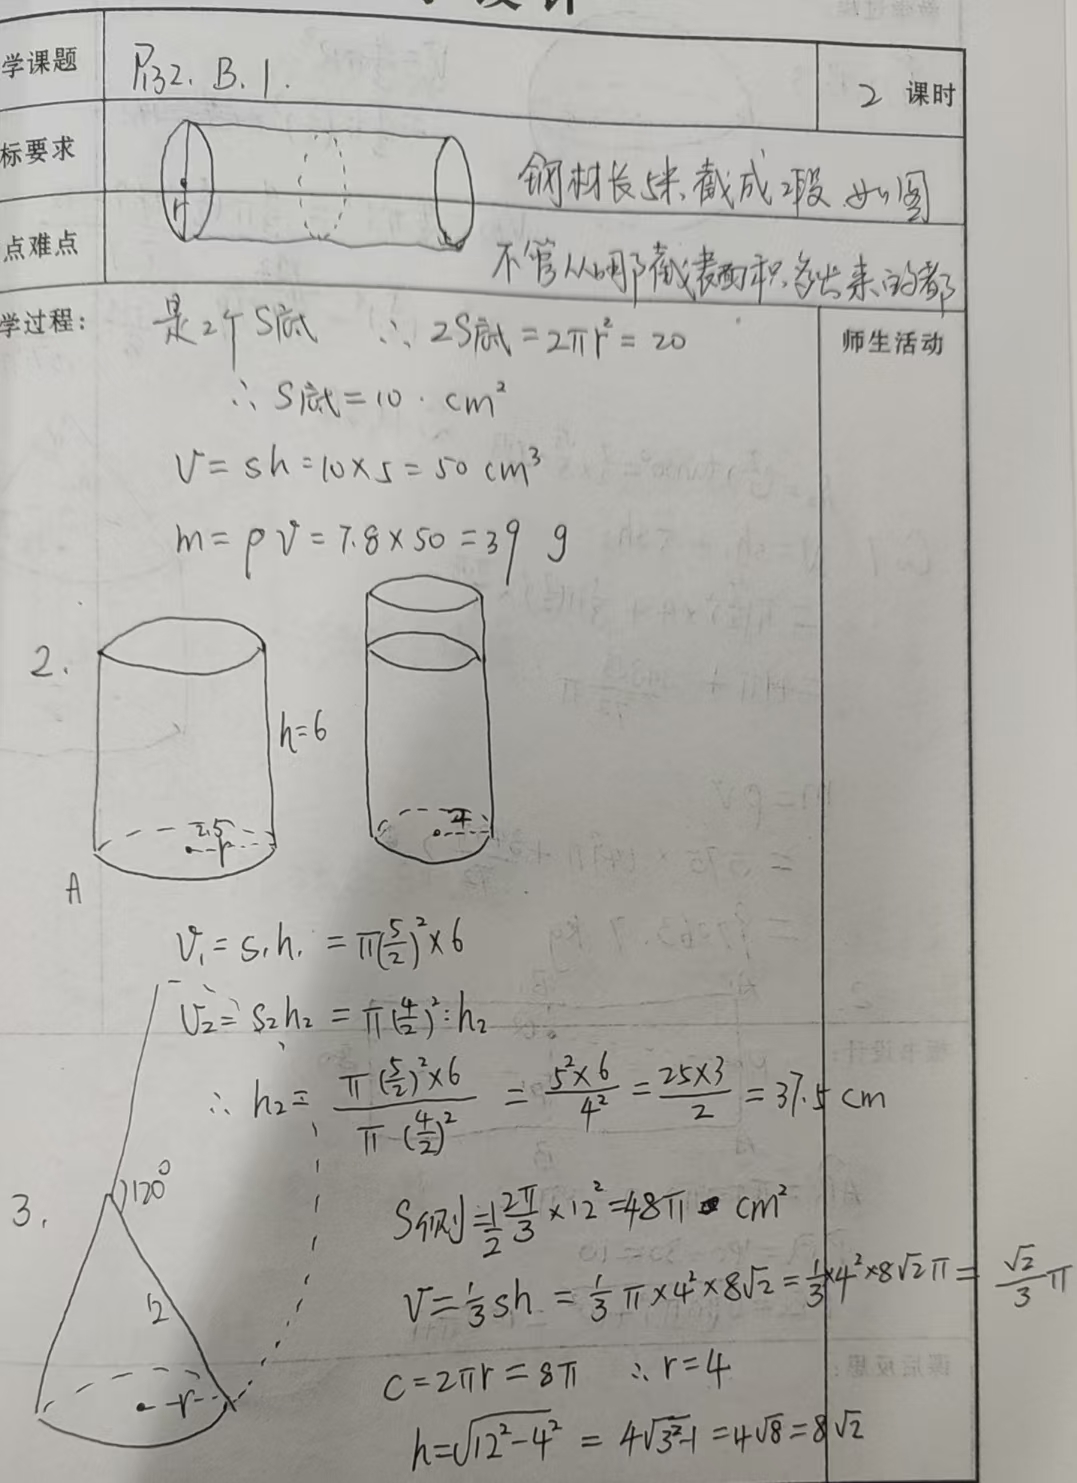 学课题 P132. B. 1. 2 课时
标要求
钢材长5米 截成2段 如图
点难点
r
不管从哪截表面积多出来的都
学过程: 是2个S底 ∴ 2S底=2πr²=20
师生活动
∴ S底=10 . cm²
V=sh=10×5=50 cm³
m=ρV=7.8×50=39 g
2.
h=6
2.5 r 4
A
V₁=S₁h₁=π(5/2)²×6
V₂=S₂h₂=π(4/2)²·h₂
∴ h₂=π(5/2)²×6/π(4/2)²=5²×6/4²=25×3/2=37.5 cm
3. 120°
S侧=1/2 2π/3×12²=48π cm²
12
V=1/3sh=1/3π×4²×8√2=1/3×4²×8√2π=√2/3π
r
C=2πr=8π ∴r=4
h=√12²-4²=4√3²-1=4√8=8√2